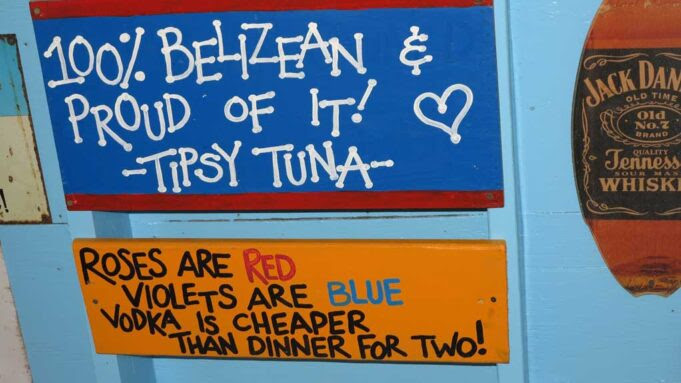 100% BELIZEAN &
PROUD OF IT! ♡
-TIPSY TUNA-
ROSES ARE RED
VIOLETS ARE BLUE
VODKA IS CHEAPER
THAN DINNER FOR TWO!
JACK DAN
OLD TIME
Old
No. 7
BRAND
QUALITY
Tenness
SOUR MAS
WHISK